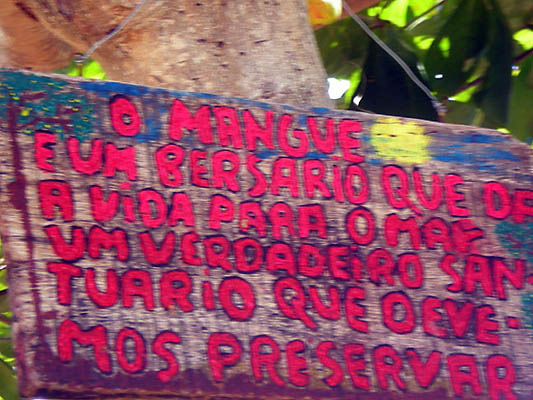 O MANGUE
E UM BERSARIO QUE DA
A VIDA PARA O MAR
UM VERDADEIRO SAN-
TUARIO QUE DEVE-
MOS PRESERVAR